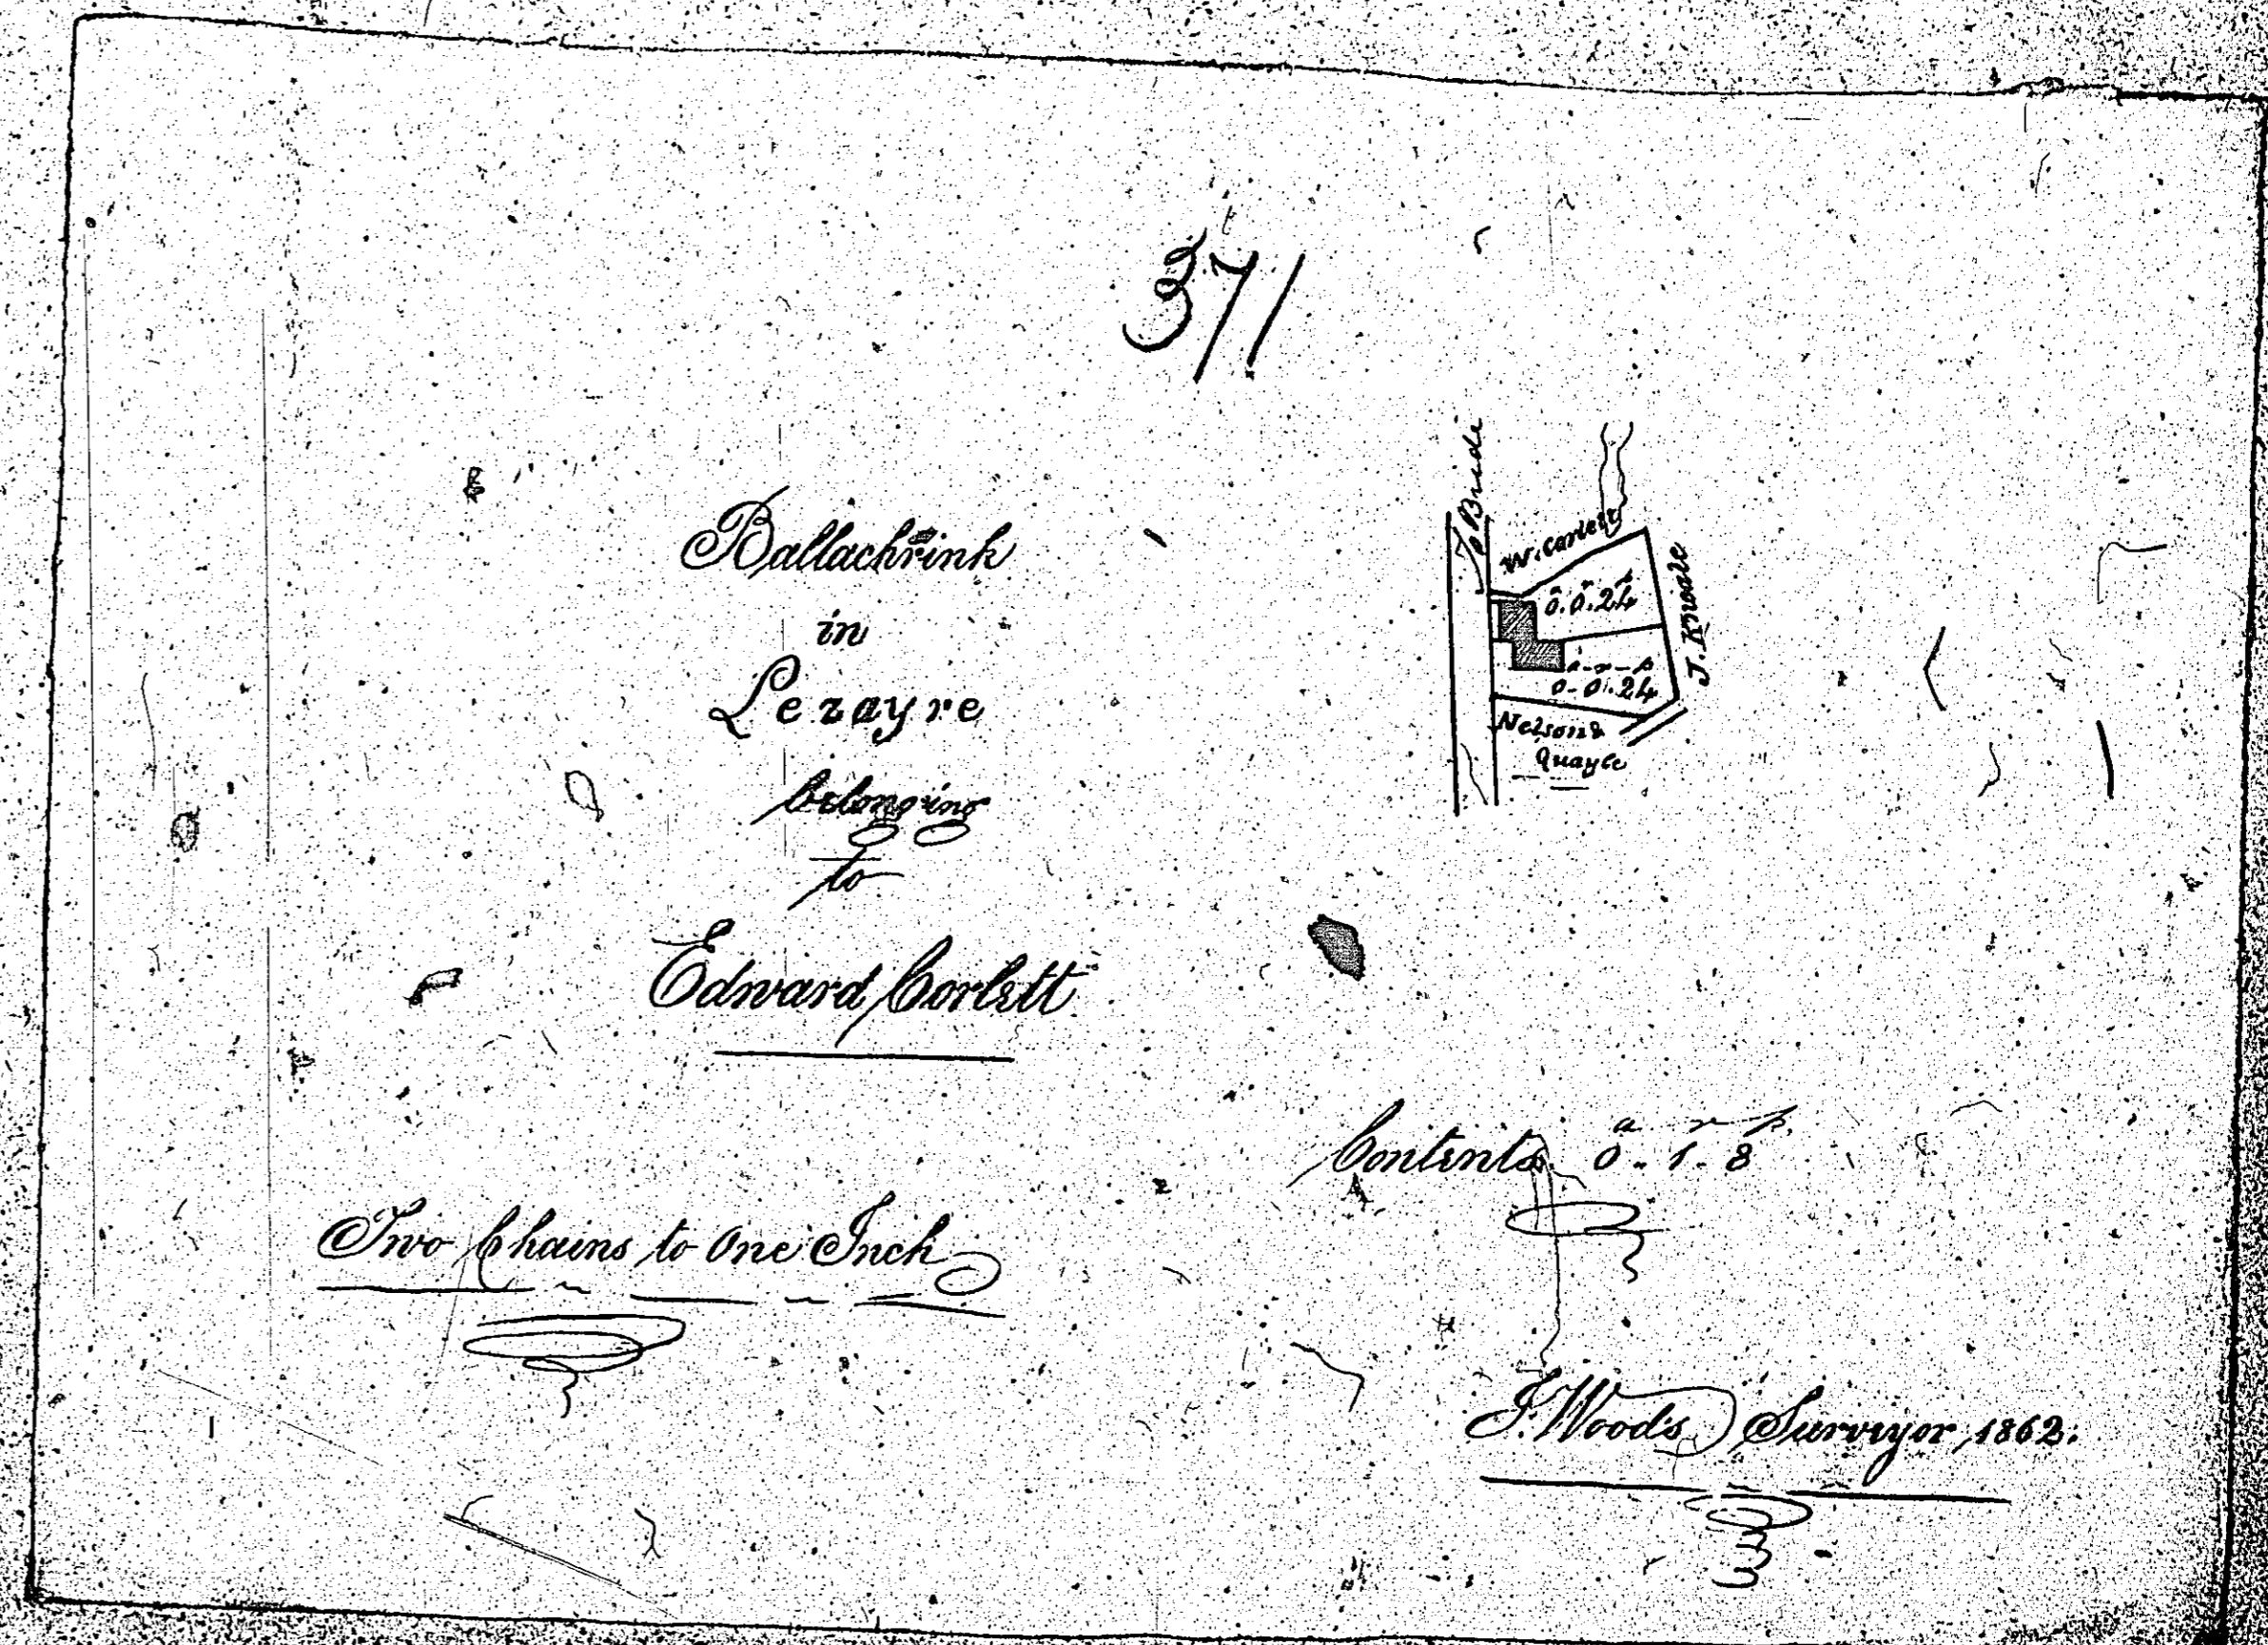 371
Ballachrink
in
Lezayre
belonging
to
Edward Corlett
To Bride
W. Corlett
a r p
0. 0. 24
J. Kneale
a - r - p
0 - 0. 24
Nelson &
Quayle
a r p
Contents 0 - 1 - 8
Two Chains to One Inch
J. Woods Surveyor, 1862.